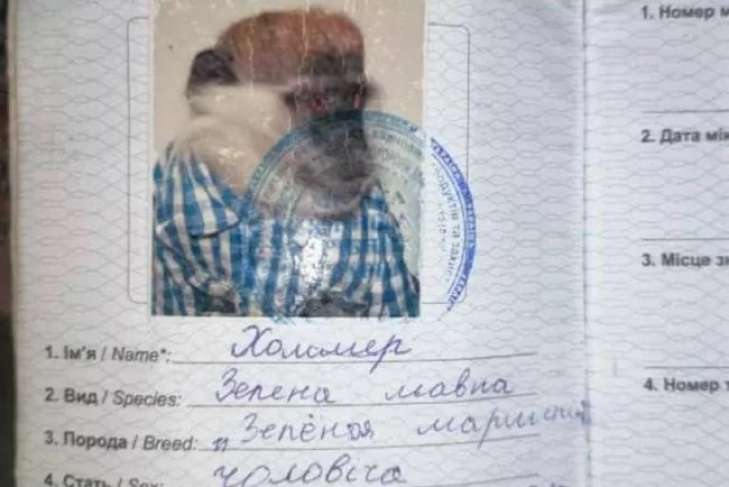 1. Номер м
2. Дата мік
3. Місце зн
4. Номер т
1. Ім'я / Name*: Холомер
2. Вид / Species: Зелена мавпа
3. Порода / Breed: Зелёная мартышка
4. Стать / Sex: чоловіча